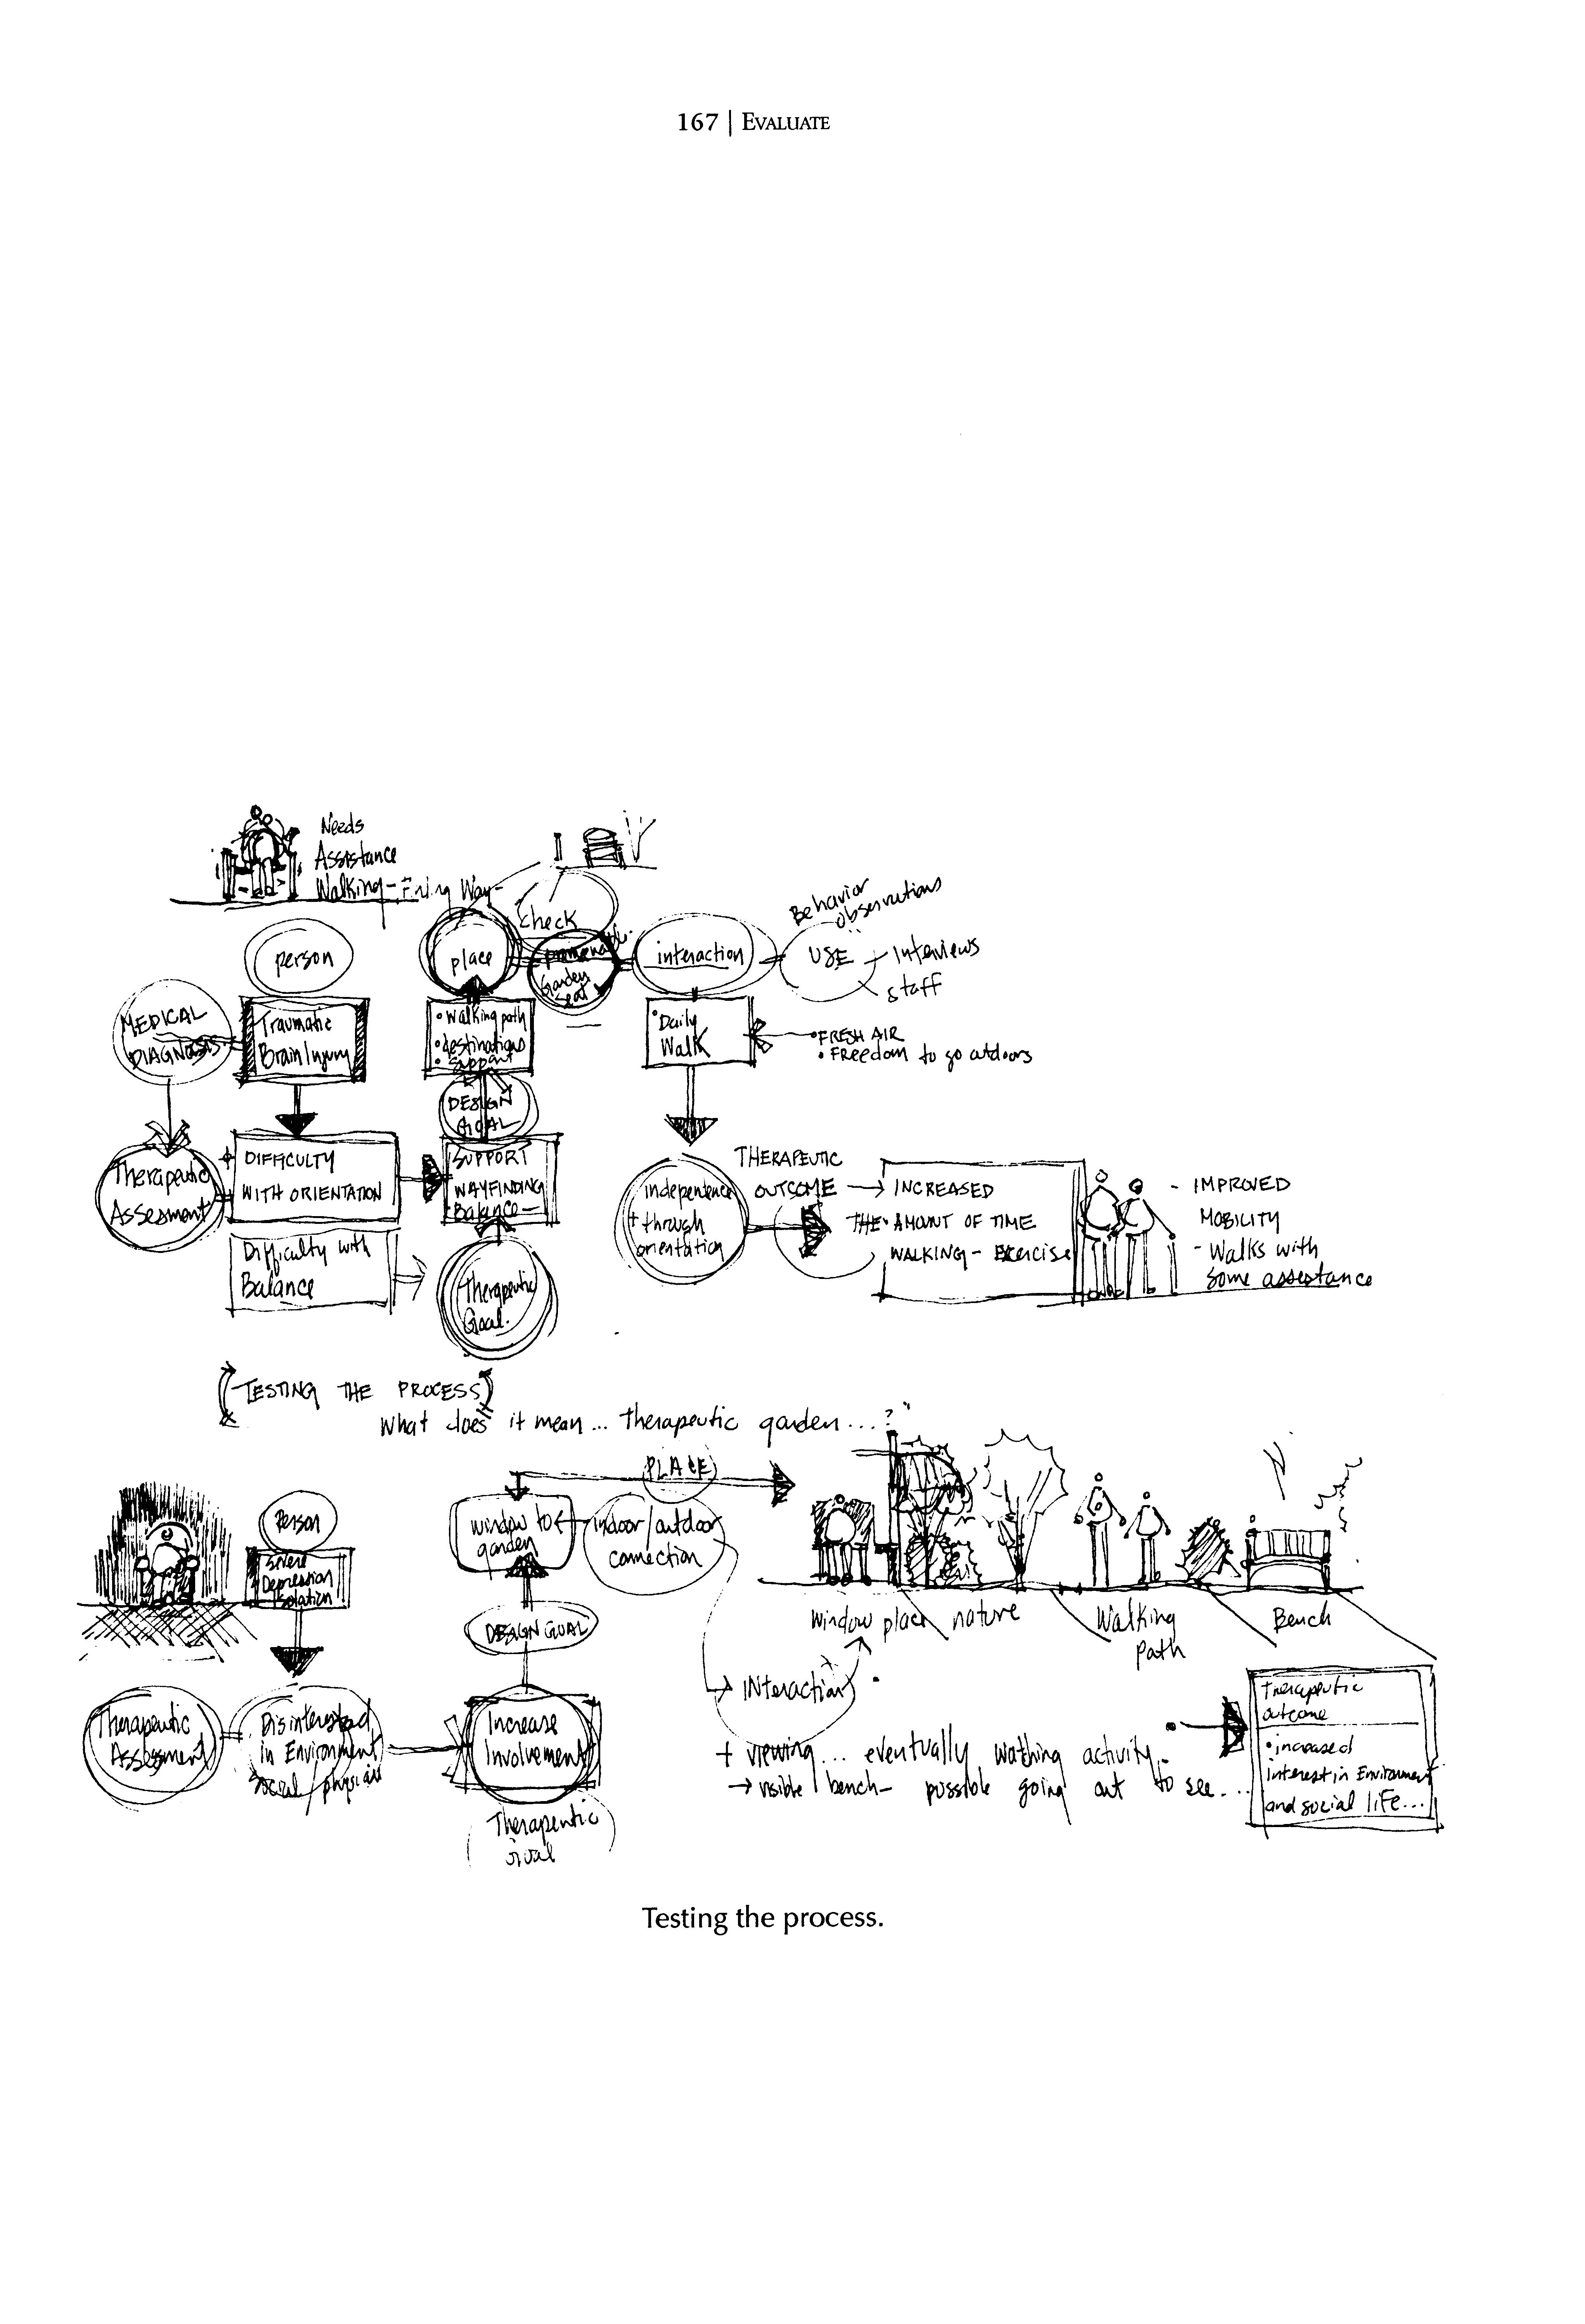 167 | EVALUATE
Needs
Assistance
Walking - Fining Way -
person
place
check
promenade
Garden
seat
interaction
USE
Behavior
observations
Interviews
staff
MEDICAL
DIAGNOSIS
Traumatic
Brain Injury
• Walking path
• destinations
• support
• Daily
Walk
• FRESH AIR
• FREEdom to go outdoors
DESIGN
GOAL
Therapeutic
Assesment
DIFFICULTY
WITH ORIENTATION
Difficulty with
Balance
SUPPORT
WAYFINDING
Balance -
Therapeutic
Goal.
independence
+ through
orientation
THERAPEUTIC
OUTCOME → INCREASED
THE AMOUNT OF TIME
WALKING - Exercise
- IMPROVED
MOBILITY
- Walks with
some assistance
(TESTING THE PROCESS)
What does it mean... therapeutic garden...?"
Person
Severe
Depression
Isolation
Therapeutic
Assessment
Disinterested
in Environment
social / physical
window to
garden
indoor/outdoor
connection
PLACE
DESIGN GOAL
Increase
Involvement
Therapeutic
window place nature
Walking
Path
Bench
→ INteraction
+ viewing... eventually watching activity -
→ visible bench - possible going out to see...
Therapeutic
outcome
• increased
interest in Environment
and social life...
Testing the process.